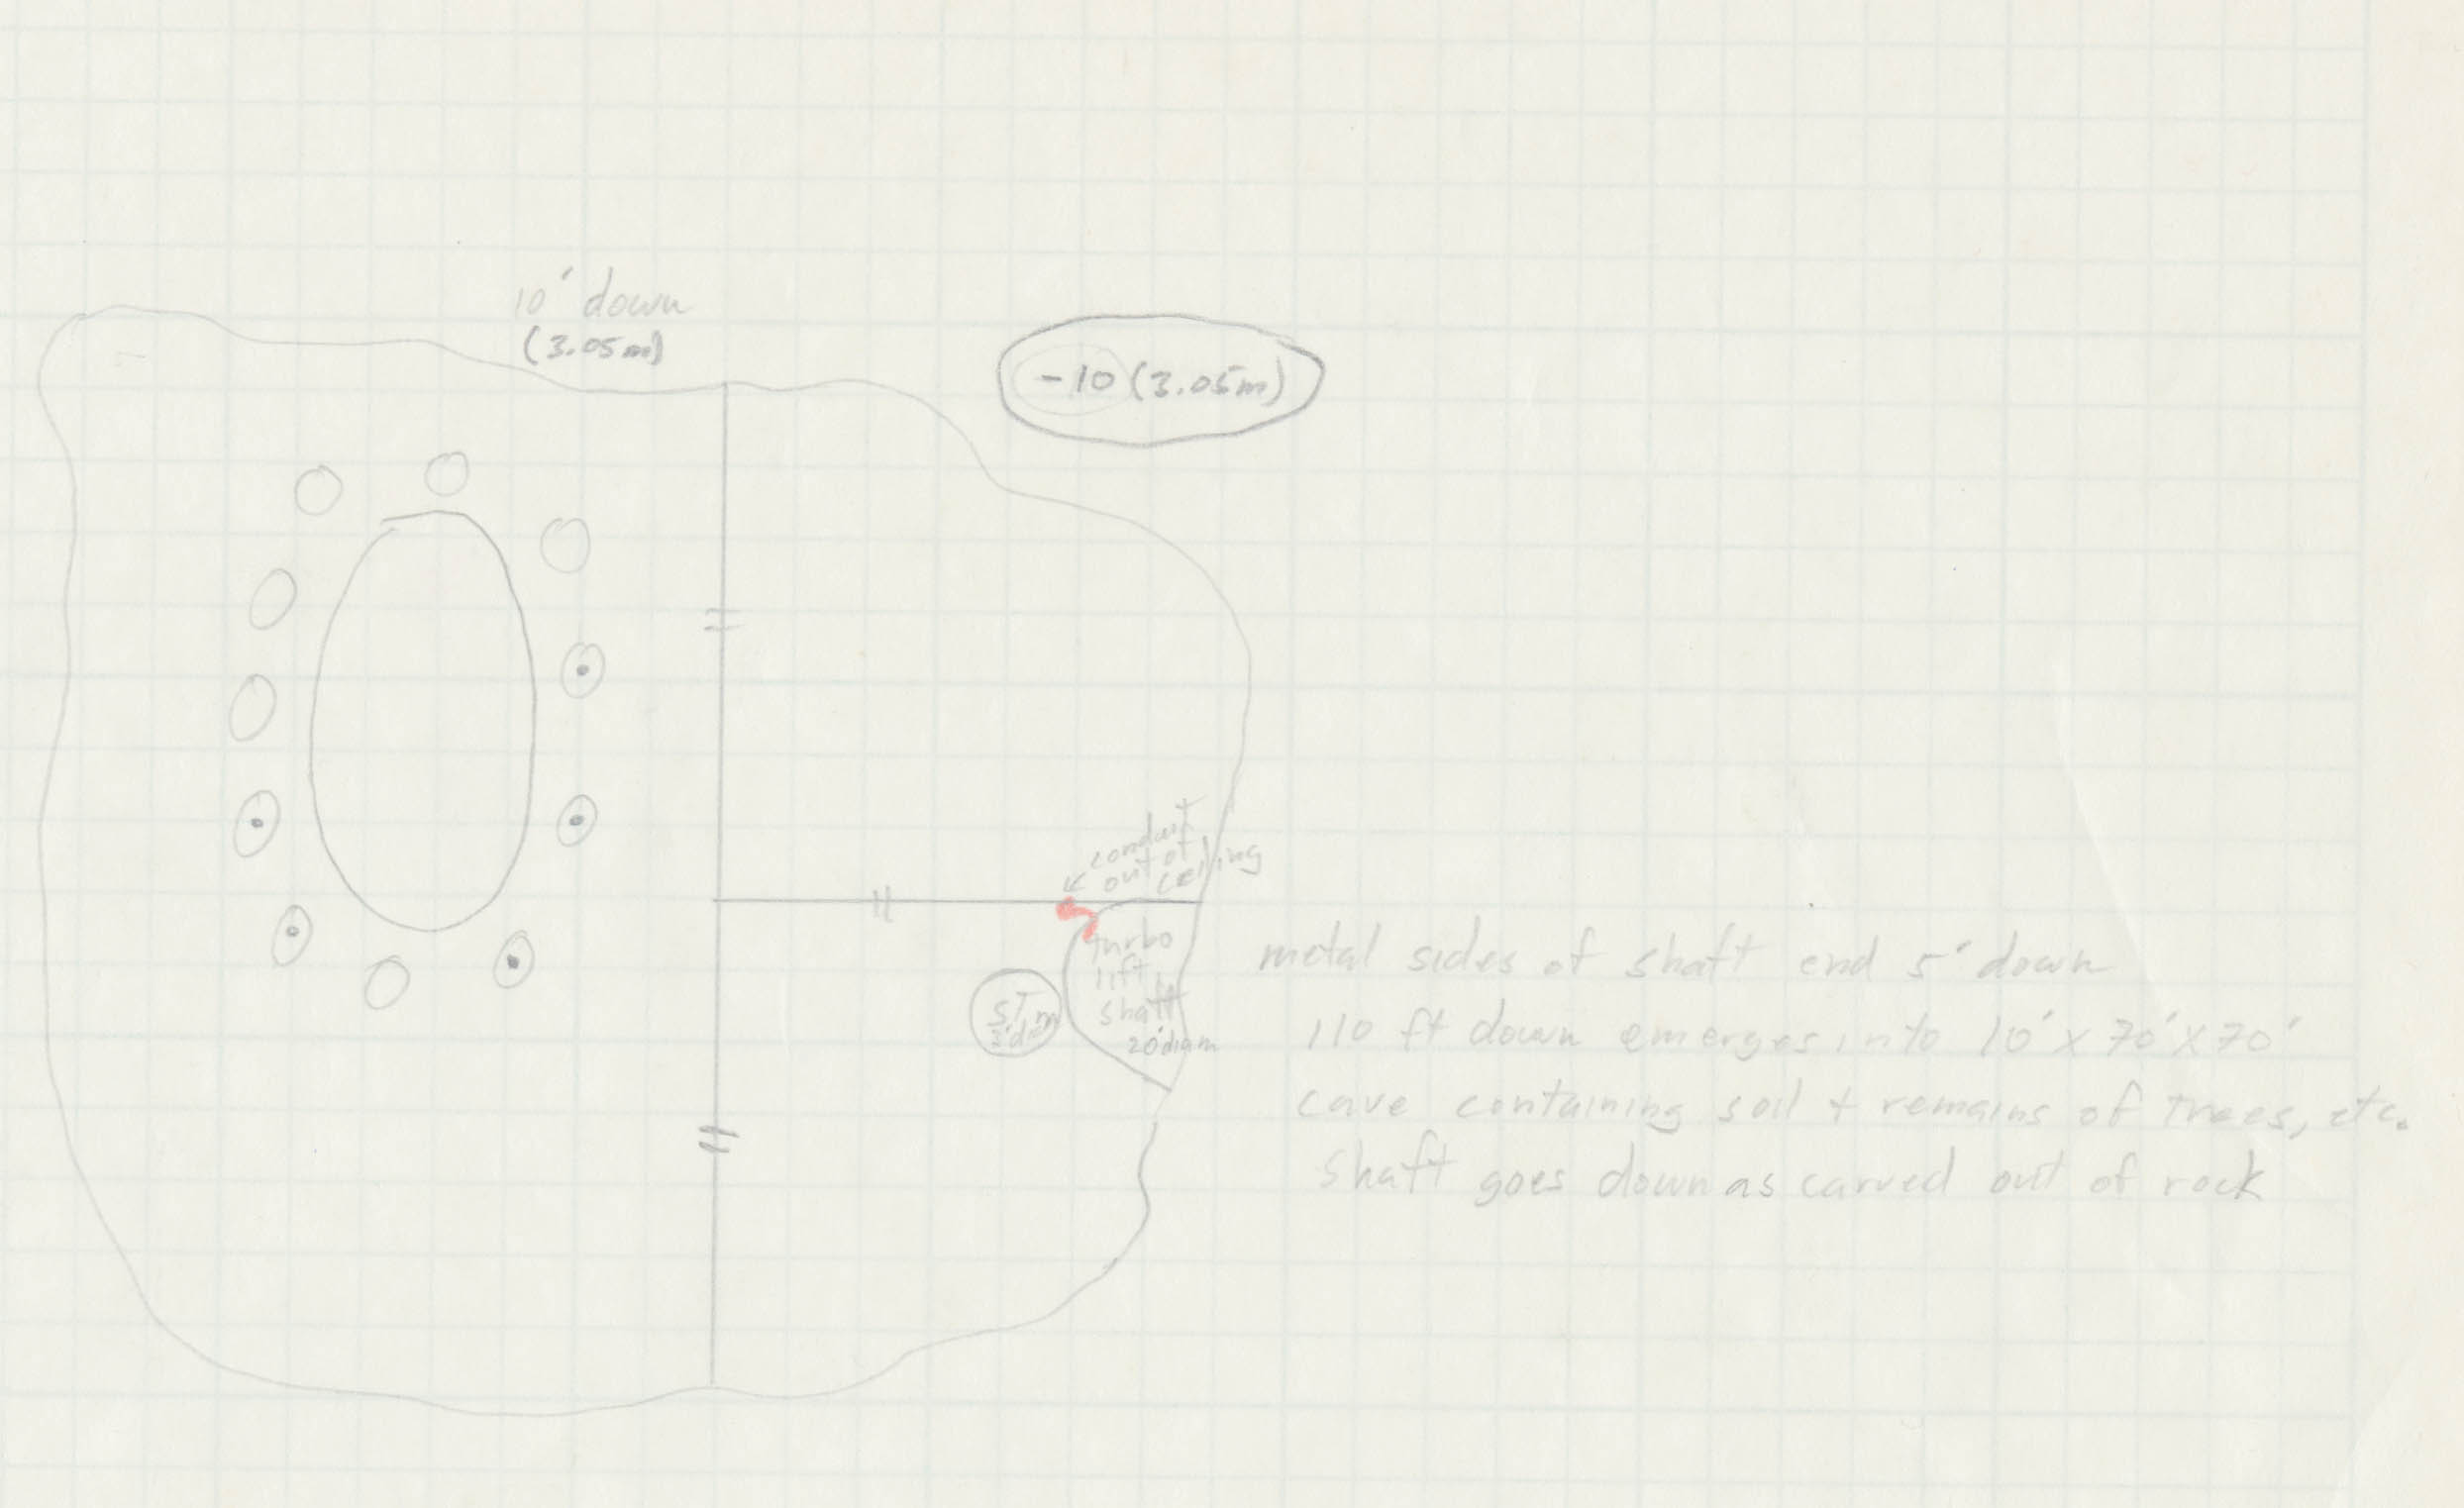 10' down
(3.05m)
-10 (3.05m)
conduit
out of
ceiling
turbo
lift
shaft
20' diam
ST
metal sides of shaft end 5' down
110 ft down emerges into 10' x 70' x 70'
cave containing soil + remains of trees, etc.
shaft goes down as carved out of rock